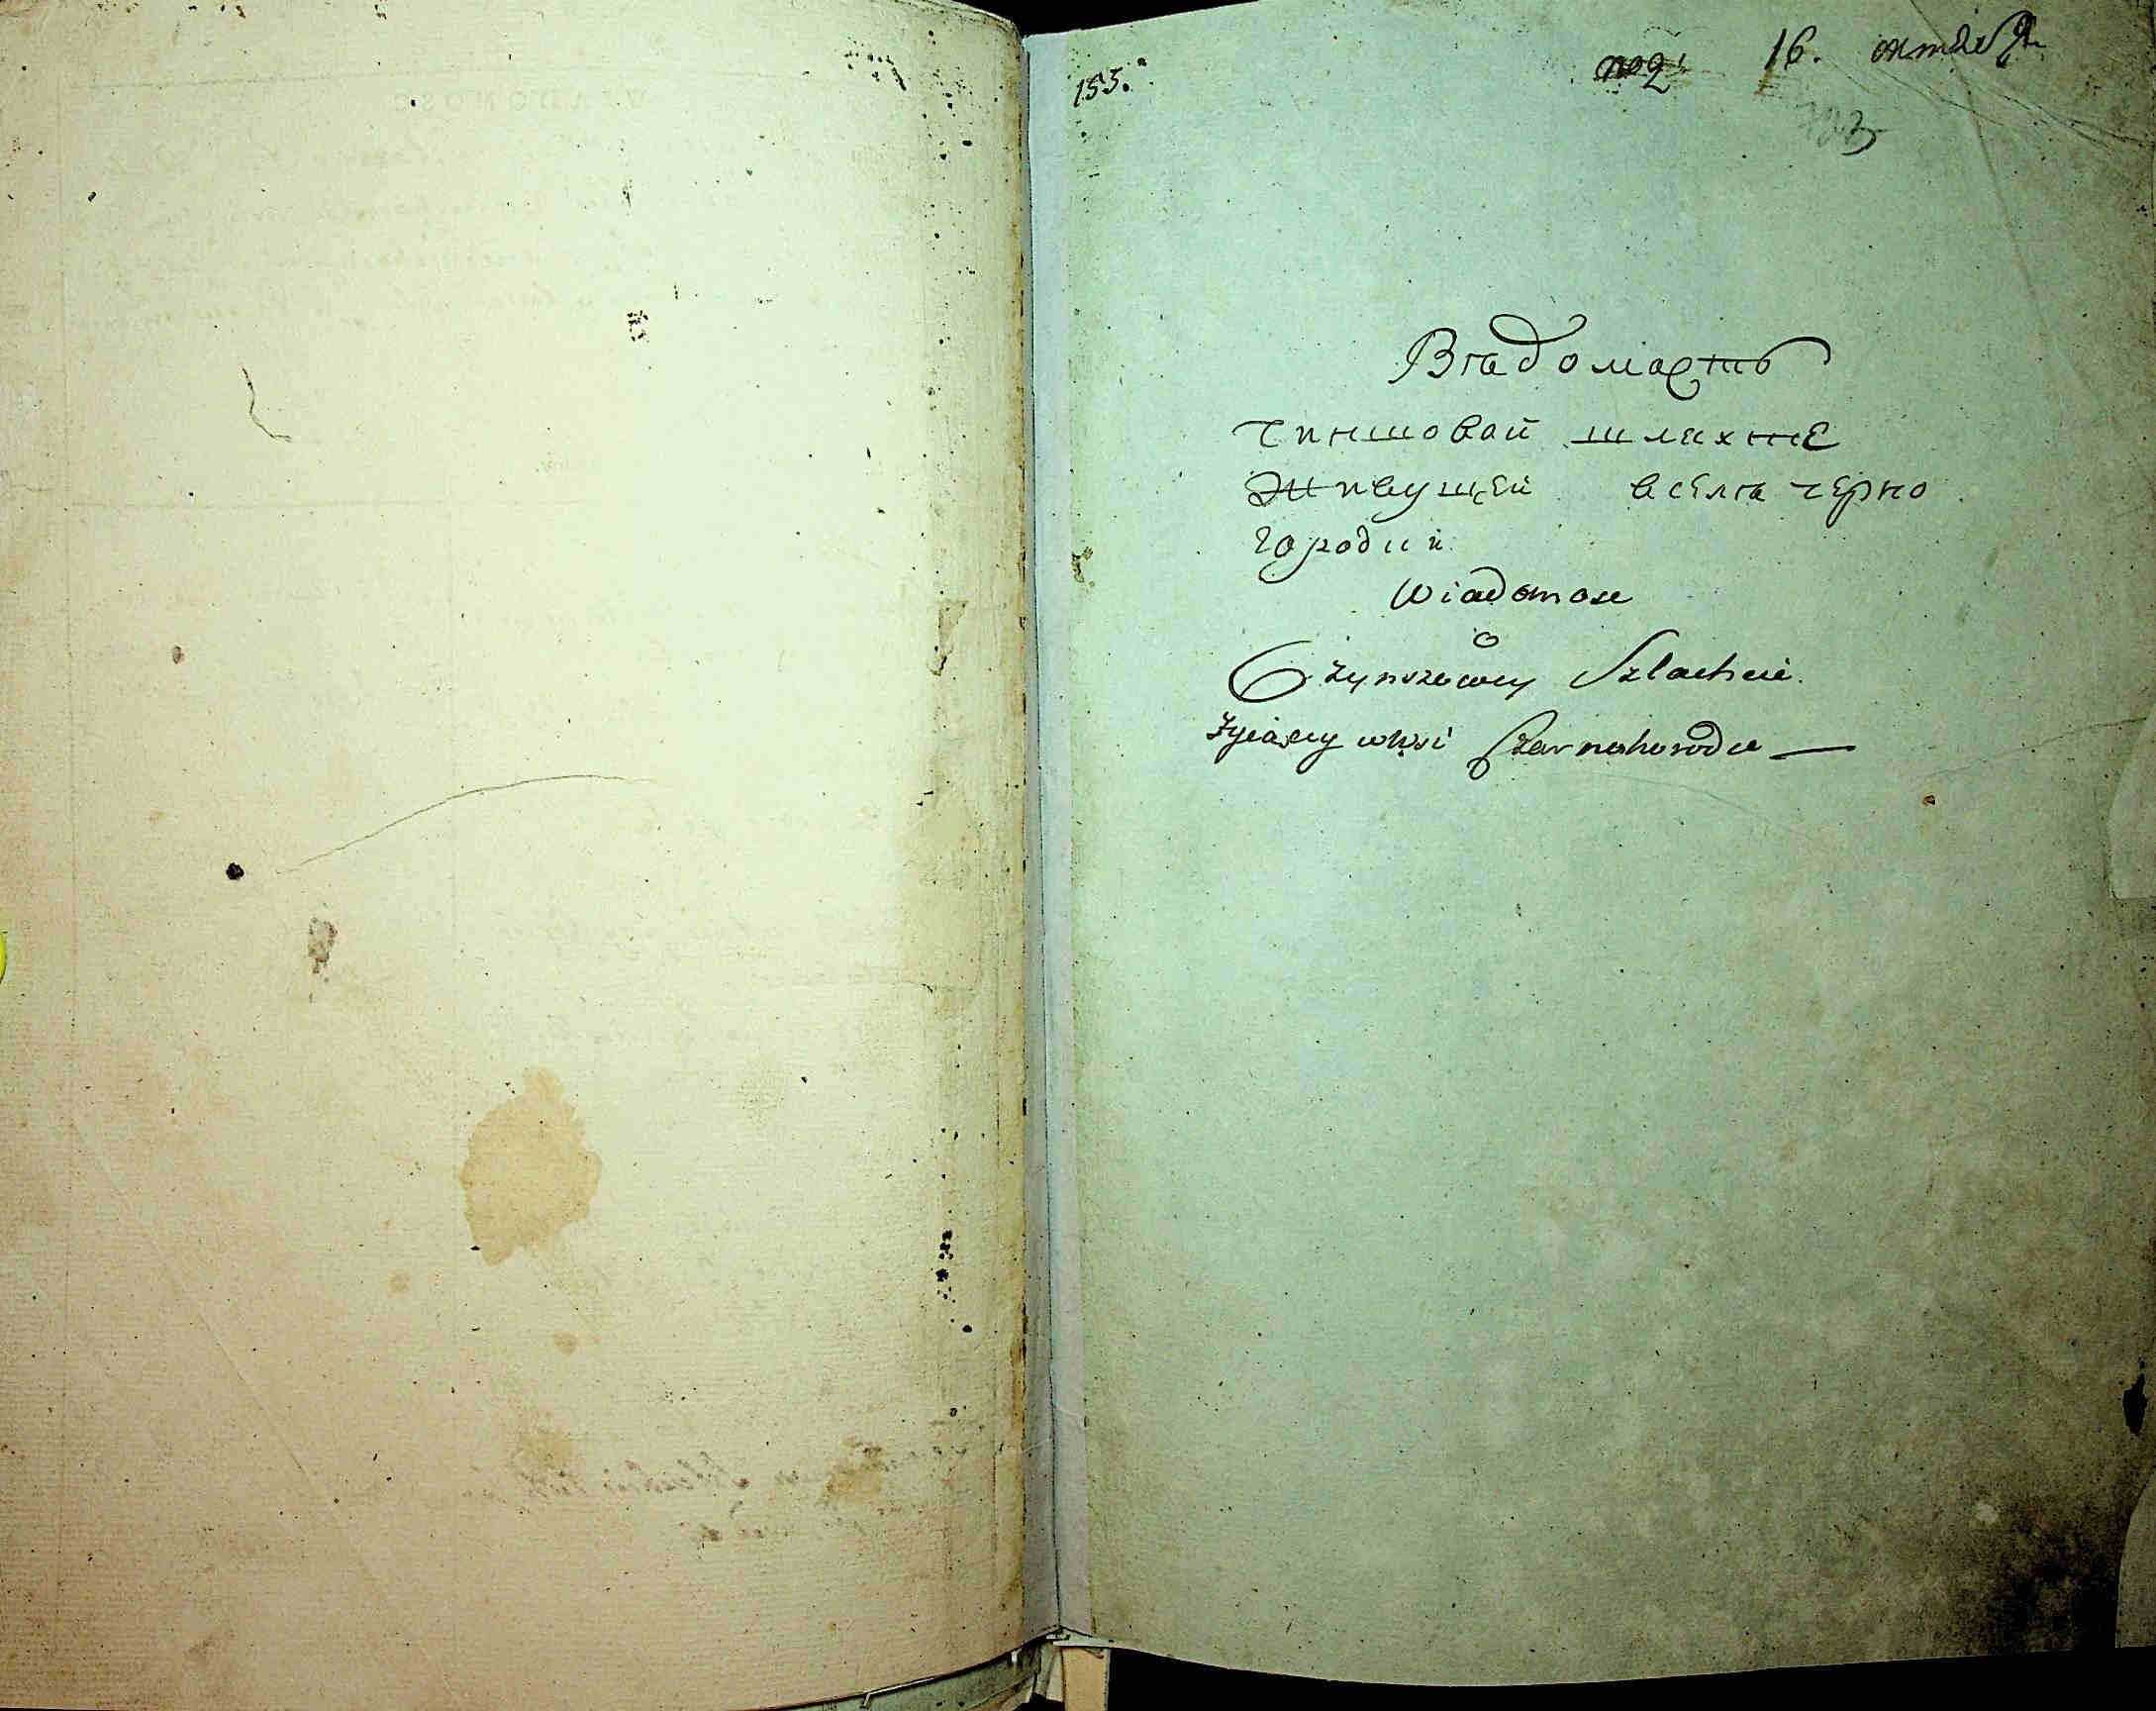 155.
под 16. октября
723
Вѣдомасть
чиншовай шляхтѣ
Живущей всѣлѣ черно
городци
Wiadomosc
o
Czynszowey Szlachcie.
Zyiącey wwsi Czarnohorodce —